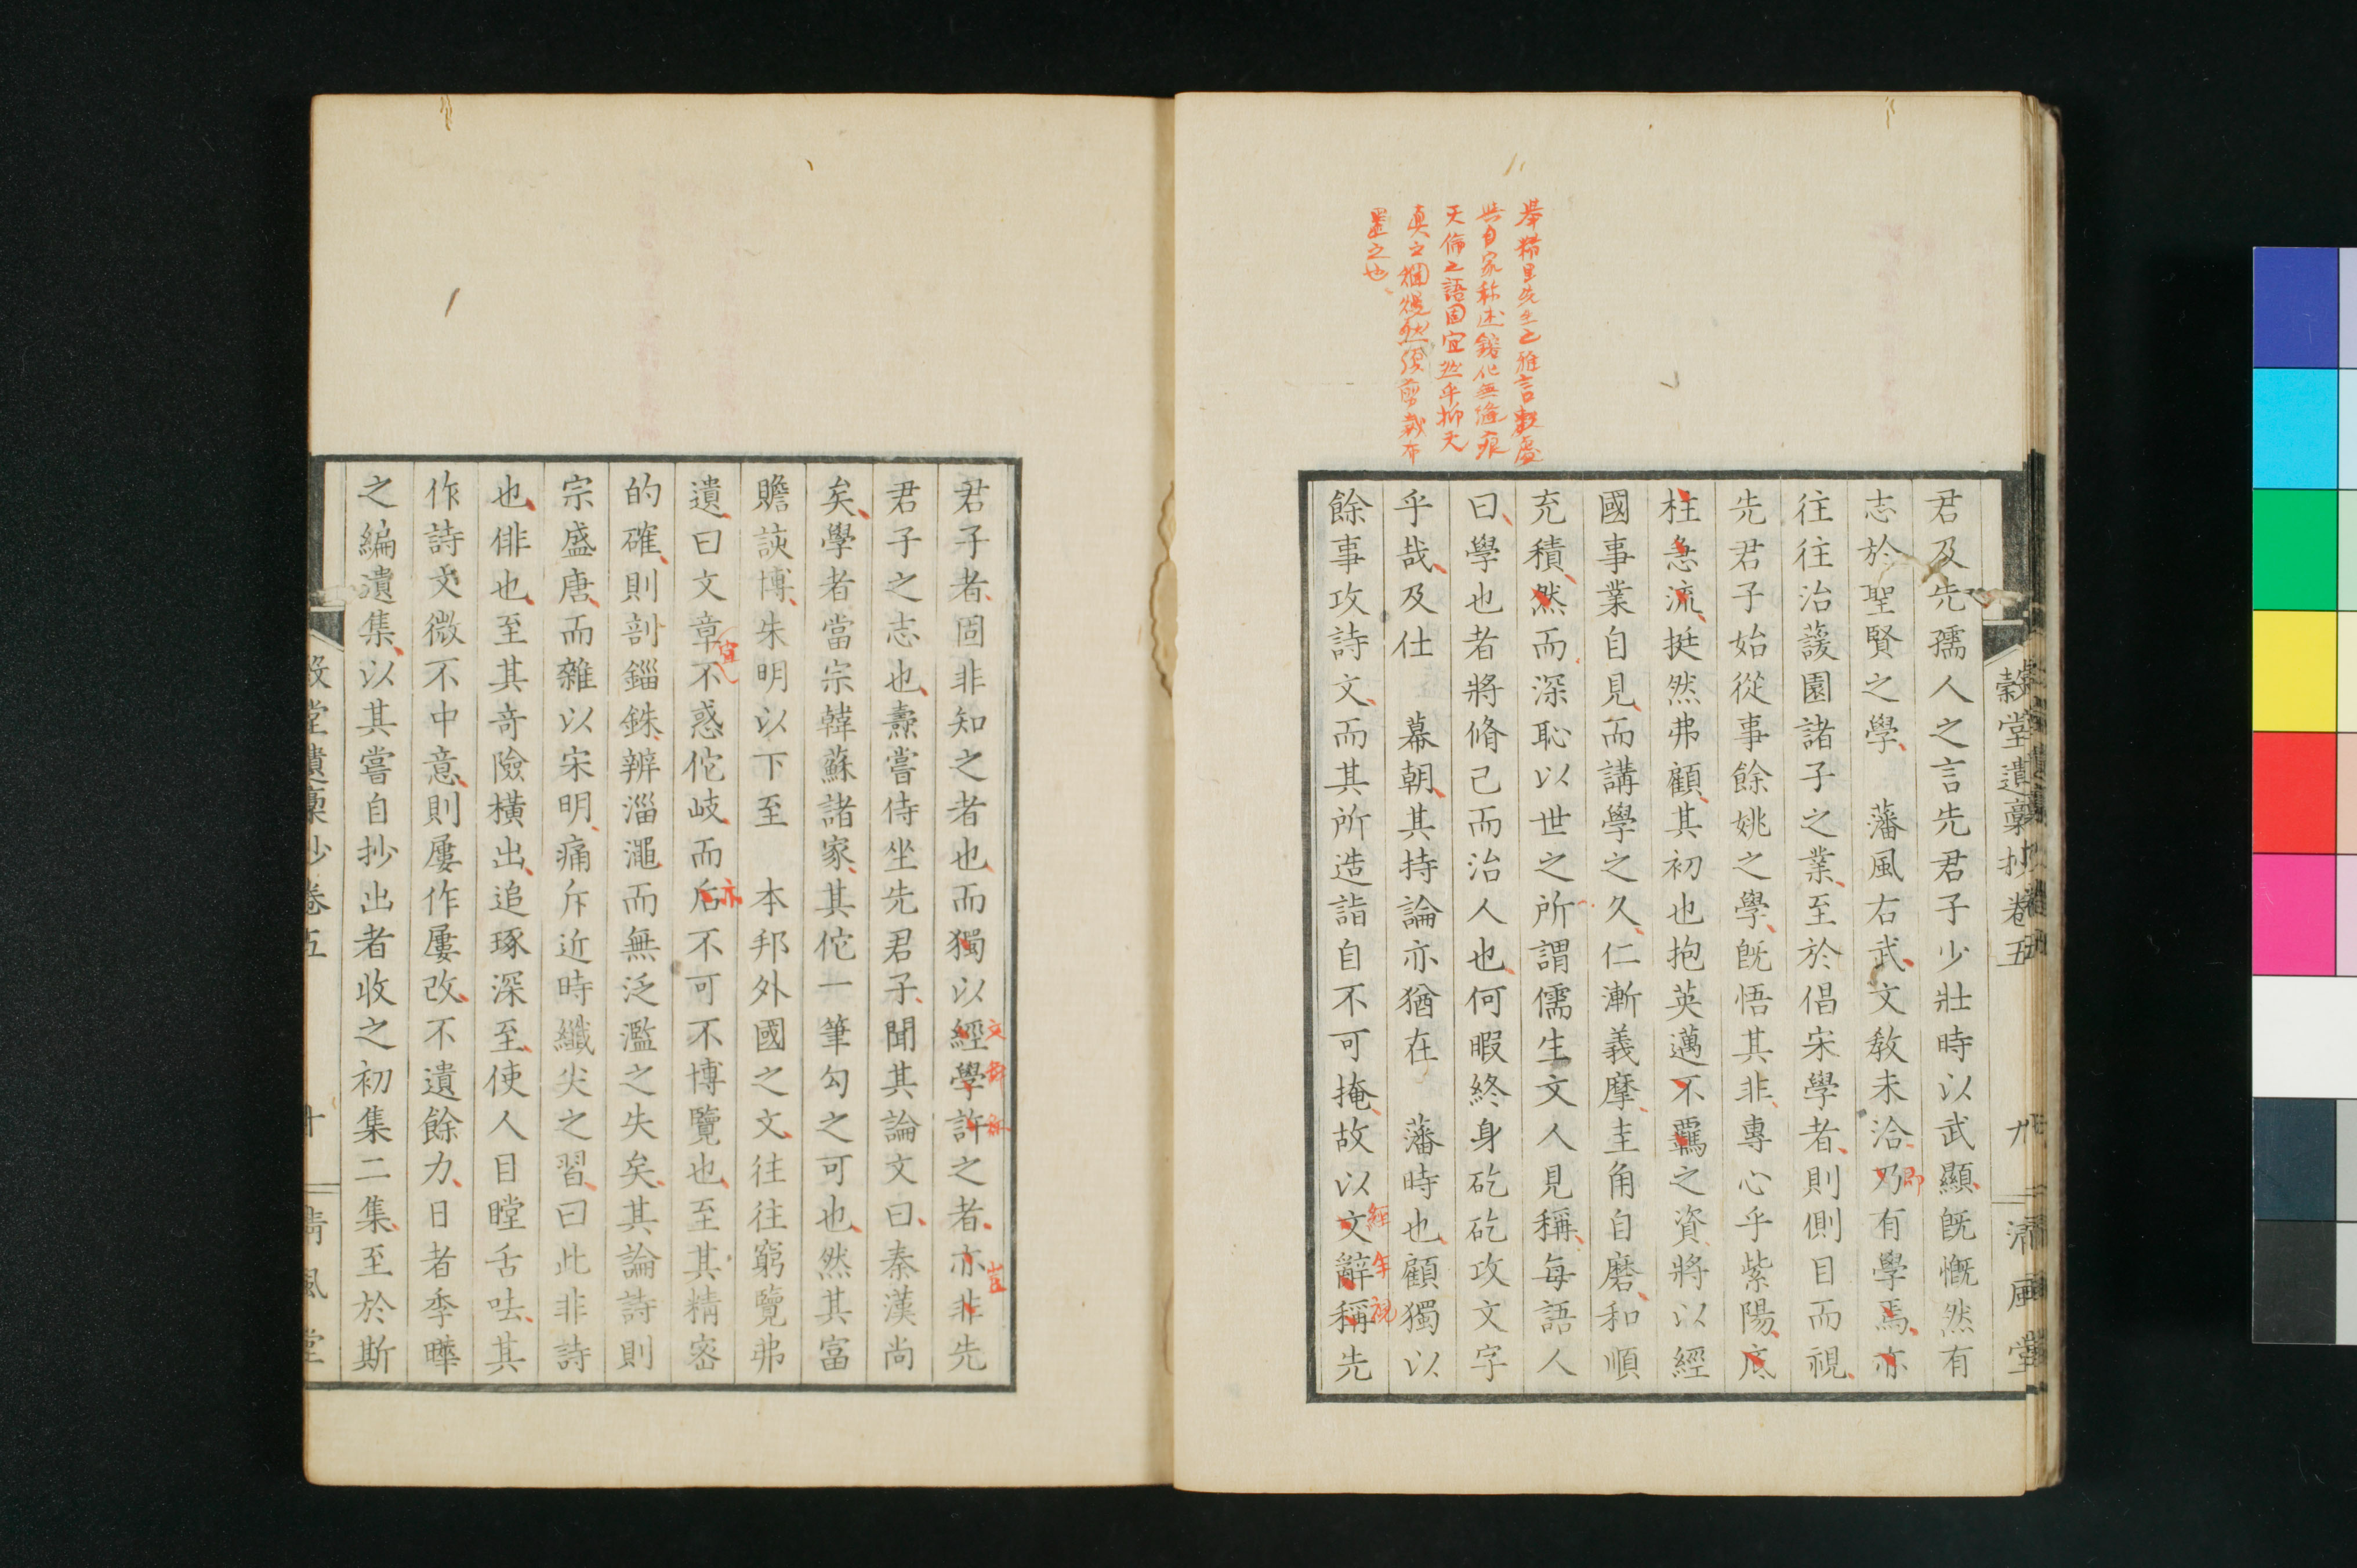 穀堂遺稾抄卷五
九
清風堂
君及先孺人之言先君子少壯時以武顯旣慨然有
志於聖賢之學　藩風右武文敎未洽乃有學焉亦
往往治蘐園諸子之業至於倡宋學者則側目而視
先君子始從事餘姚之學旣悟其非專心乎紫陽底
柱急流挺然弗顧其初也抱英邁不羈之資將以經
國事業自見而講學之久仁漸義摩圭角自磨和順
充積然而深恥以世之所謂儒生文人見稱每語人
曰學也者將脩己而治人也何暇終身矻矻攻文字
乎哉及仕　幕朝其持論亦猶在　藩時也顧獨以
餘事攻詩文而其所造詣自不可掩故以文辭稱先
即
經
視
天倫之語固宜然乎抑天
置之也
君子者固非知之者也而獨以經學許之者亦非先
君子之志也燾嘗侍坐先君子聞其論文曰秦漢尚
矣學者當宗韓蘇諸家其佗一筆勾之可也然其富
贍該博朱明以下至　本邦外國之文往往窮覽弗
遺曰文章不惑佗岐而后不可不博覽也至其精密
的確則剖錙銖辨淄澠而無泛濫之失矣其論詩則
宗盛唐而雜以宋明痛斥近時纖尖之習曰此非詩
也俳也至其奇險橫出追琢深至使人目瞠舌呿其
作詩文微不中意則屢作屢改不遺餘力日者季曄
之編遺集以其嘗自抄出者收之初集二集至於斯
文
亦
豈
堂遺稾抄卷五
十
清風堂